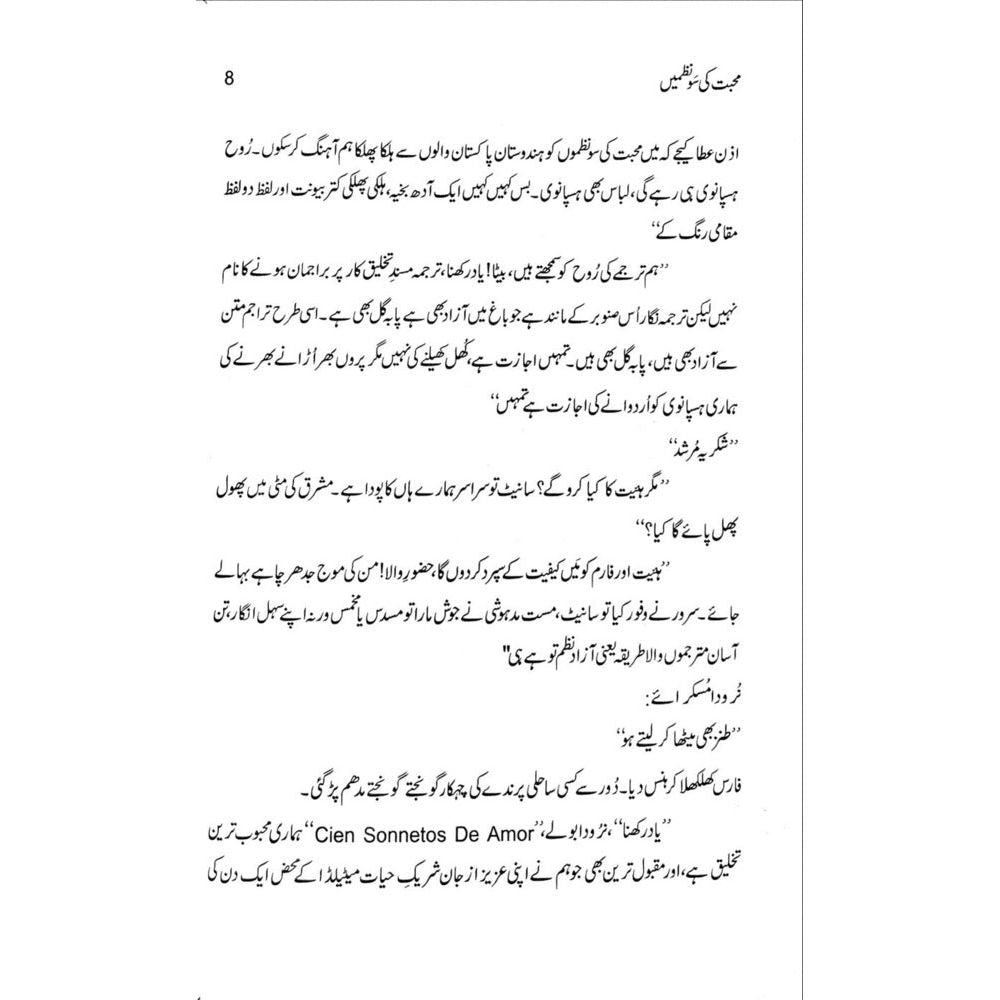 محبت کی سَو نظمیں 8
اذن عطا کیجے کہ میں محبت کی سو نظموں کو ہندوستان پاکستان والوں سے ہلکا پھلکا ہم آہنگ کر سکوں۔ رُوح
ہسپانوی ہی رہے گی، لباس بھی ہسپانوی۔ بس کہیں کہیں ایک آدھ بخیہ، ہلکی پھلکی کتر بیونت اور لفظ دو لفظ
مقامی رنگ کے‘‘
’’ہم ترجمے کی رُوح کو سمجھتے ہیں، بیٹا! یاد رکھنا، ترجمہ مسندِ تخلیق کار پر براجمان ہونے کا نام
نہیں لیکن ترجمہ نگار اُس صنوبر کے مانند ہے جو باغ میں آزاد بھی ہے پابہ گل بھی ہے۔ اسی طرح تراجم متن
سے آزاد بھی ہیں، پابہ گل بھی ہیں۔ تمہیں اجازت ہے، کُھل کھیلنے کی نہیں مگر پروں بھر اُڑانے بھرنے کی
ہماری ہسپانوی کو اُردوانے کی اجازت ہے تمہیں‘‘
’’شکریہ مُرشد‘‘
’’مگر ہئیت کا کیا کرو گے؟ سانیٹ تو سراسر ہمارے ہاں کا پودا ہے۔ مشرق کی مٹی میں پھول
پھل پائے گا کیا؟‘‘
’’ہئیت اور فارم کو مَیں کیفیت کے سپرد کر دوں گا، حضورِ والا! من کی موج جدھر چاہے بہالے
جائے۔ سرور نے وفور کیا تو سانیٹ، مست مدہوشی نے جوش مارا تو مسدس یا مخمس ورنہ اپنے سہل انگار، تن
آسان مترجموں والا طریقہ یعنی آزاد نظم تو ہے ہی"
نُرودا مُسکرائے:
’’طنز بھی میٹھا کر لیتے ہو‘‘
فارس کھلکھلا کر ہنس دیا۔ دُور سے کسی ساحلی پرندے کی چہکار گونجتے گونجتے مدھم پڑ گئی۔
’’یاد رکھنا‘‘، نرودا بولے، ’’Cien Sonnetos De Amor‘‘ ہماری محبوب ترین
تخلیق ہے، اور مقبول ترین بھی جو ہم نے اپنی عزیز از جان شریکِ حیات میٹیلڈا کے محض ایک دن کی